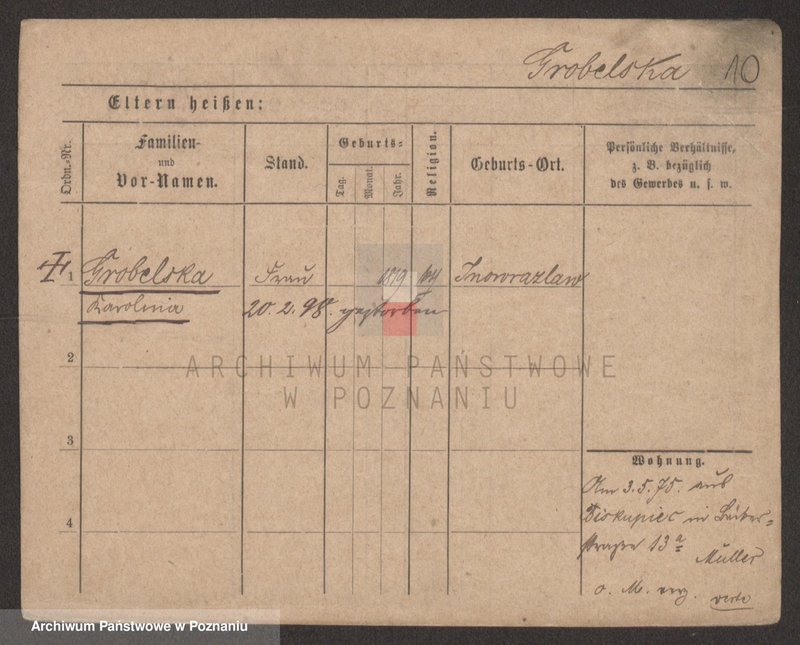 Grobelska 10
Eltern heißen:
Ordn.-Nr.
Familien-
und
Vor-Namen.
Stand.
Geburts-
Tag.
Monat.
Jahr.
Religion.
Geburts-Ort.
Persönliche Verhältnisse,
z. B. bezüglich
des Gewerbes u. s. w.
1 Grobelska Frau 1819 Inowrazlaw
Karolina 20. 2. 98. gestorben
2
ARCHIWUM PAŃSTWOWE
W POZNANIU
3
4
Wohnung.
Am 3. 5. 75. aus
Biskupiec in Bäcker-
straße 13a Müller
o. M. verz.
Archiwum Państwowe w Poznaniu